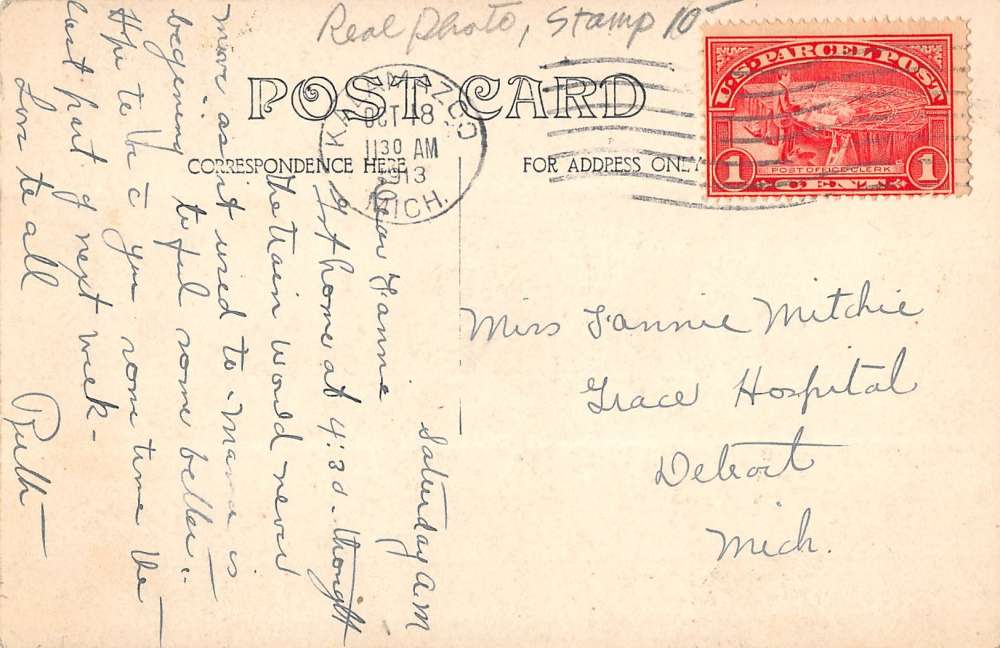 Real Photo, Stamp 10-
POST CARD
CORRESPONDENCE HERE
FOR ADDRESS ONLY
KALAMAZOO
OCT 18
1130 AM
1913
MICH.
U.S. PARCEL POST
POST OFFICE CLERK
1 CENT 1
Saturday a m
Dear Fannie
Got home at 4:30 - thought
the train would never
move as it used to. Mama is
begening to feel some better..
Hpe to be c̄ you some time be-
last part of next week -
Love to all
Ruth -
Miss Fannie Mitchie
Grace Hospital
Detroit
Mich.